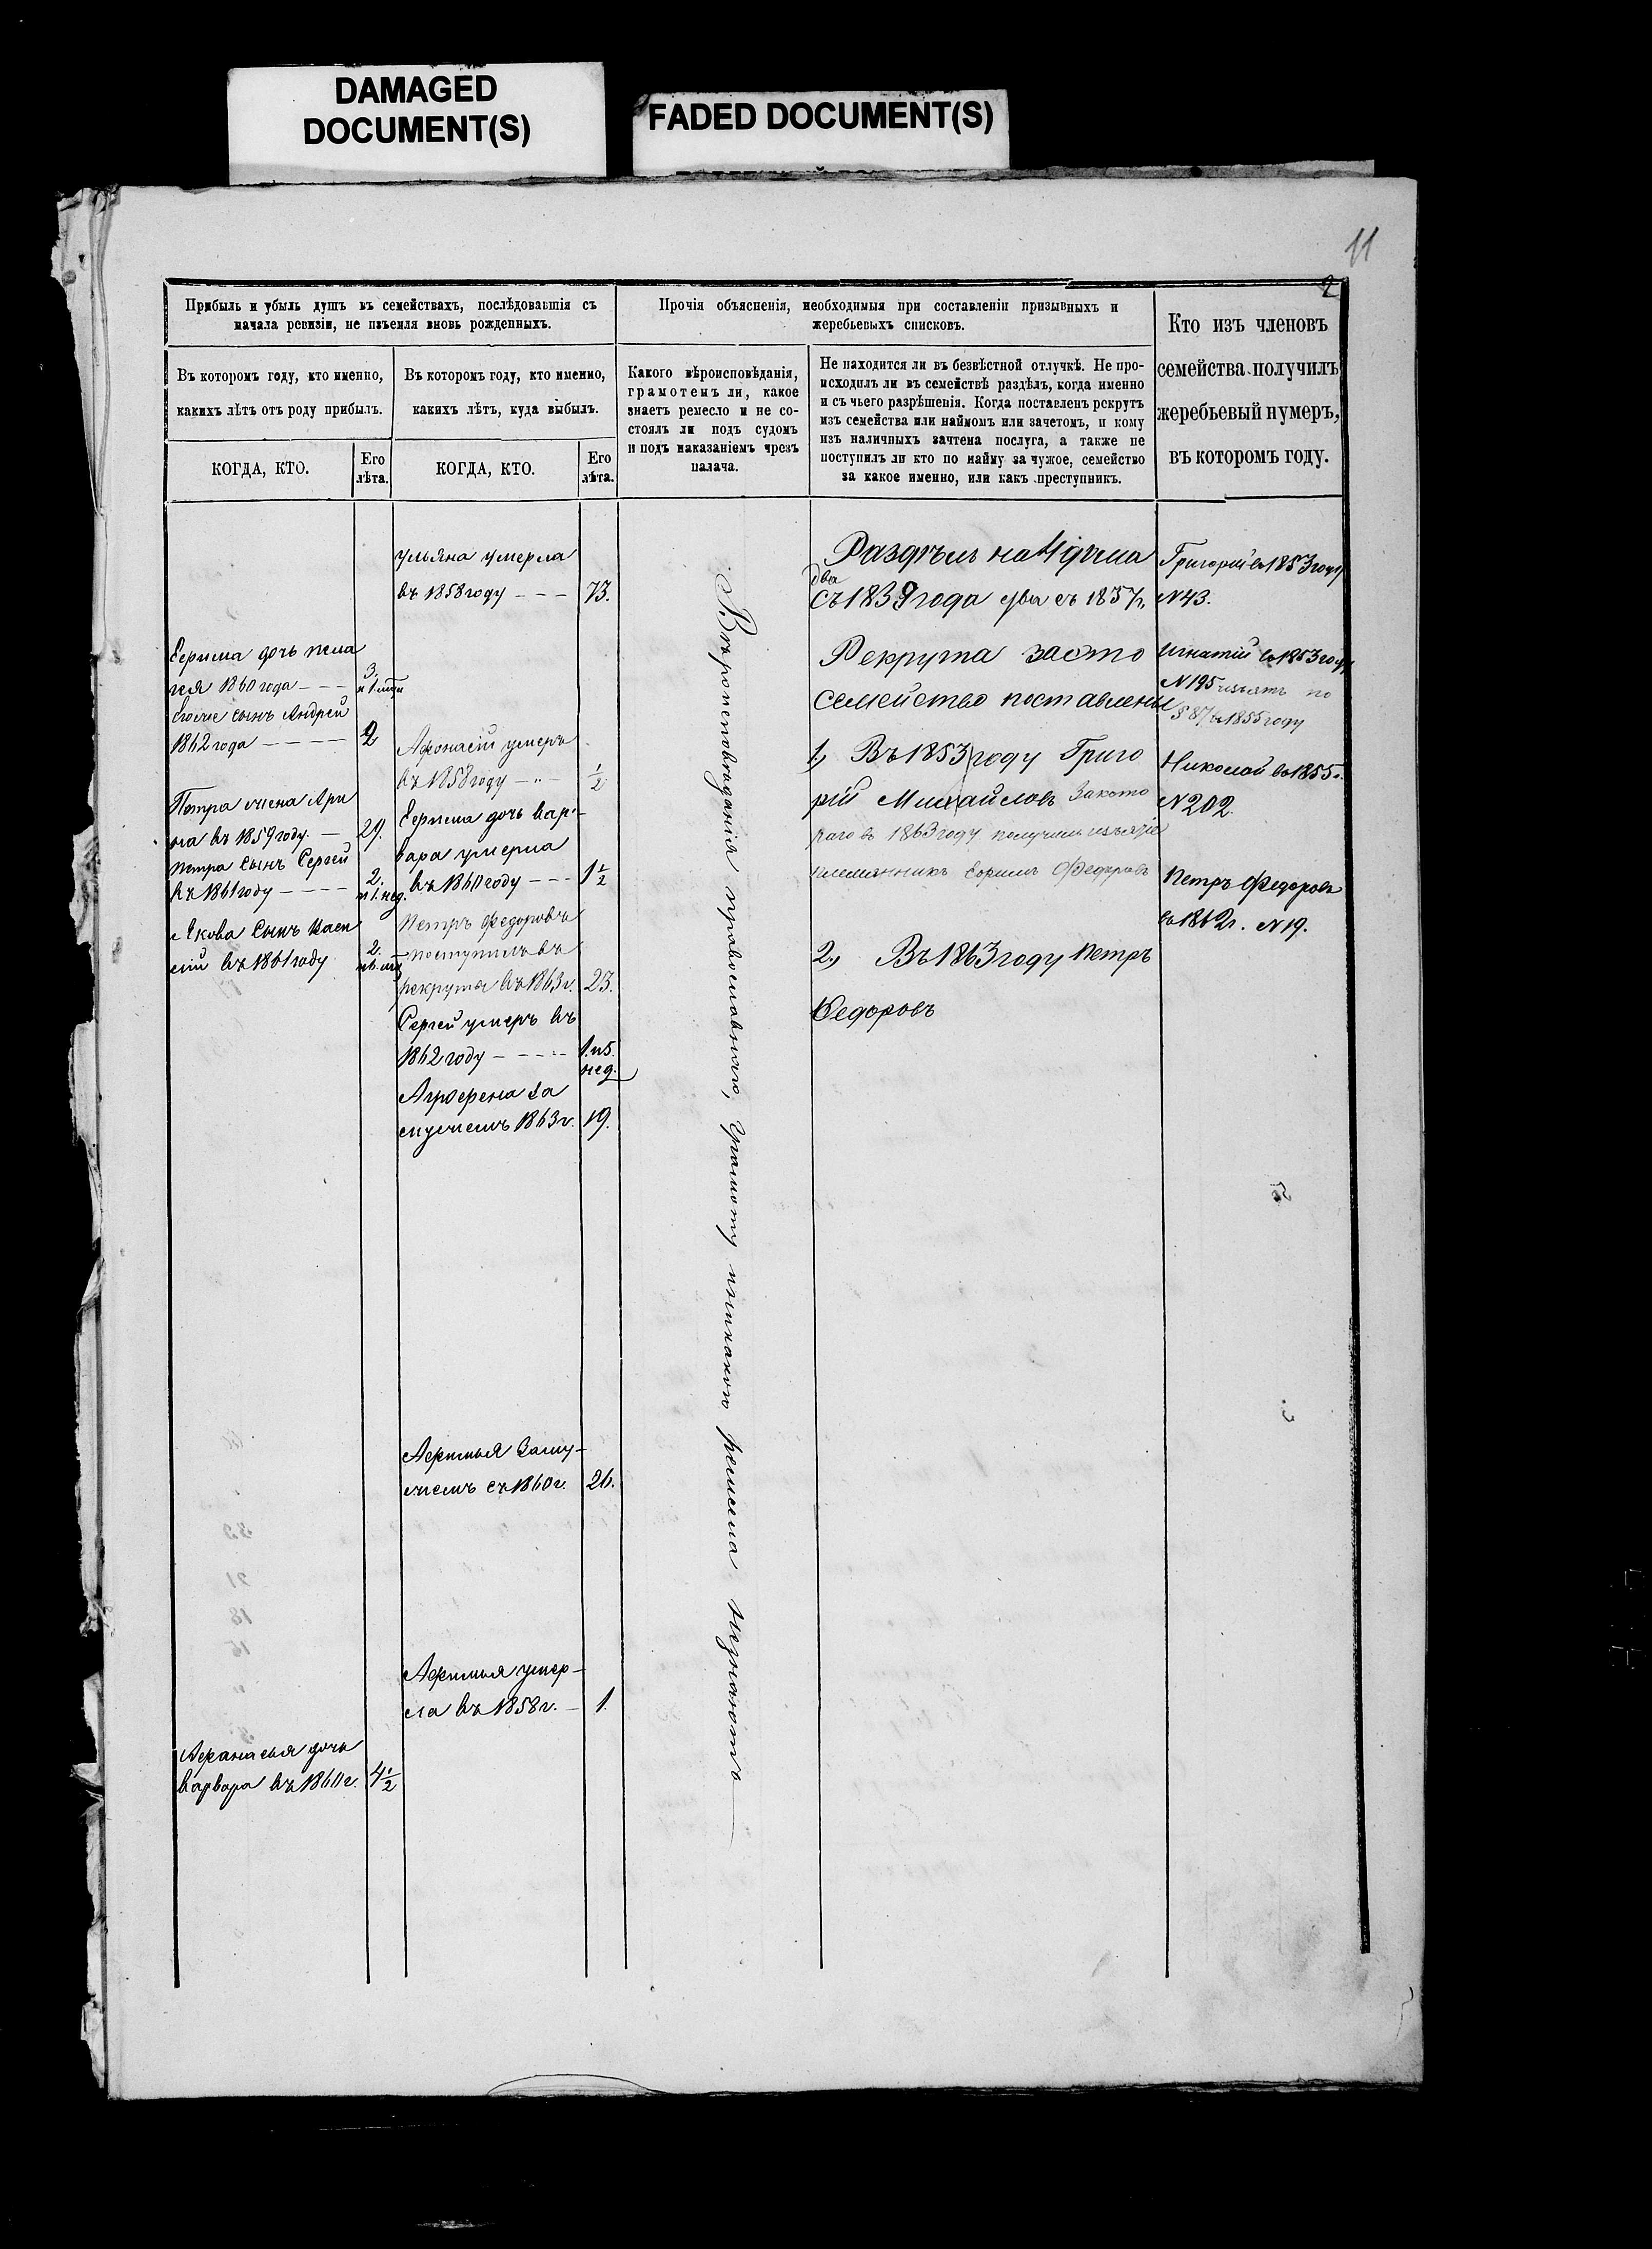 DAMAGED
DOCUMENT(S)
FADED DOCUMENT(S)
11
2
Прибыль и убыль душъ въ семействахъ, послѣдовавшія съ
начала ревизіи, не изъемля вновь рожденныхъ.
Прочія объясненія, необходимыя при составленіи призывныхъ и
жеребьевыхъ списковъ.
Кто изъ членовъ
семейства получилъ
жеребьевый нумеръ,
въ которомъ году.
Въ которомъ году, кто именно,
какихъ лѣтъ отъ роду прибылъ.
Въ которомъ году, кто именно,
какихъ лѣтъ, куда выбылъ.
Какого вѣроисповѣданія,
грамотенъ ли, какое
знаетъ ремесло и не со-
стоялъ ли подъ судомъ
и подъ наказаніемъ чрезъ
палача.
Не находится ли въ безвѣстной отлучкѣ. Не про-
исходилъ ли въ семействѣ раздѣлъ, когда именно
и съ чьего разрѣшенія. Когда поставленъ рекрутъ
изъ семейства или наймомъ или зачетомъ, и кому
изъ наличныхъ зачтена послуга, а также не
поступилъ ли кто по найму за чужое, семейство
за какое именно, или какъ преступникъ.
КОГДА, КТО.
Его
лѣта.
КОГДА, КТО.
Его
лѣта.
Ефима дочь Пела
гея 1860 года - - - 3.
Егоже сынъ Андрей
1862 года - - - - 2
Петра жена Ари
на въ 1859 году. - 29.
Петра сынъ Сергей
въ 1861 году - - - - 2.
и 1. нед.
Якова сынъ Васи
лій въ 1861 году 2.
Афанасья дочь
Варвара въ 1860 г. 4 1/2
Ульяна умерла
въ 1858 году - - - 73.
Афонасій умеръ
въ 1858 году - " - 1/2
Ефима дочь Вар-
вара умерла
въ 1860 году - - - 1 1/2
Петръ Федоровъ
поступилъ въ
рекруты въ 1863 г. 23.
Сергей умеръ въ
1862 году - - - - - 1. и 5.
нед.
Агрофена за
мужемъ 1863 г. 19.
Афимья заму-
жемъ съ 1860 г. 26.
Афимья умер-
ла въ 1858 г. - 1.
Вѣроисповѣданія православнаго, грамоту и никакого ремесла не знаютъ
Раздѣлъ на 4 дома
два
съ 1839 года два съ 1857 г.
Рекрута за это
семейство поставлены
1., Въ 1853 году Григо
рій Михайловъ за кото
раго въ 1863 году получилъ изъятіе
племянникъ Ефимъ Федоровъ
2., Въ 1863 году Петръ
Федоровъ
Григорій въ 1853 году
N 43.
Игнатій въ 1853 году
N 195 изъятъ по
§ 87 в 1855 году
Николай въ 1855 г.
N 202.
Петръ Федоровъ
въ 1862 г. N 19.